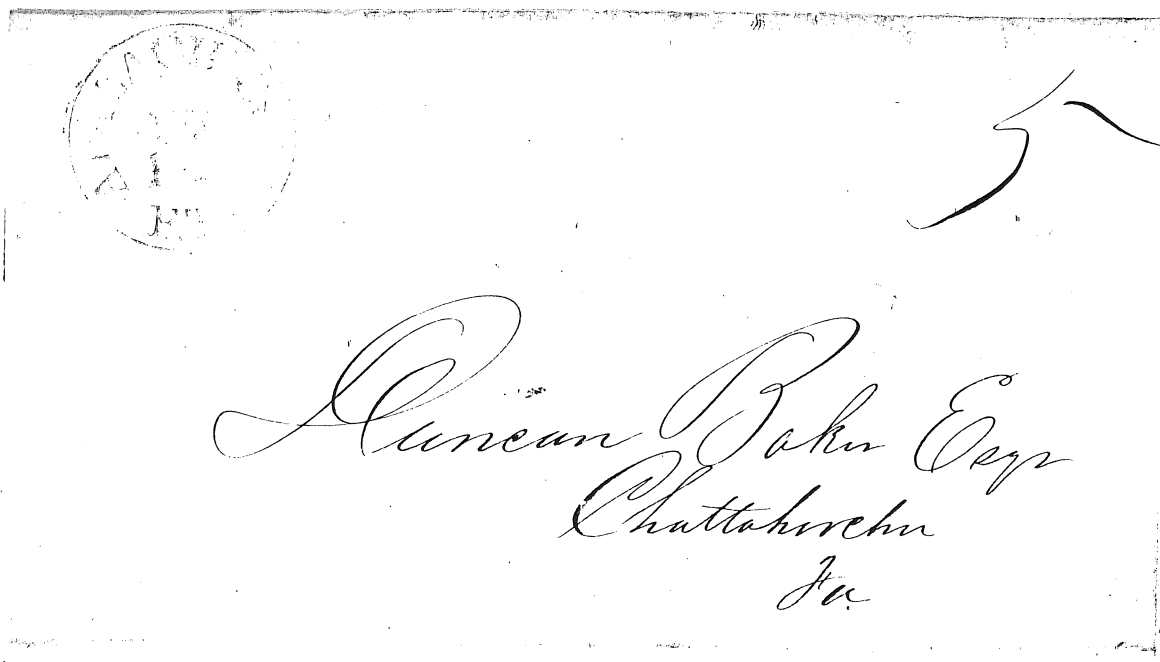 5
Duncan Baker Esqr
Chattahoochee
Fa.